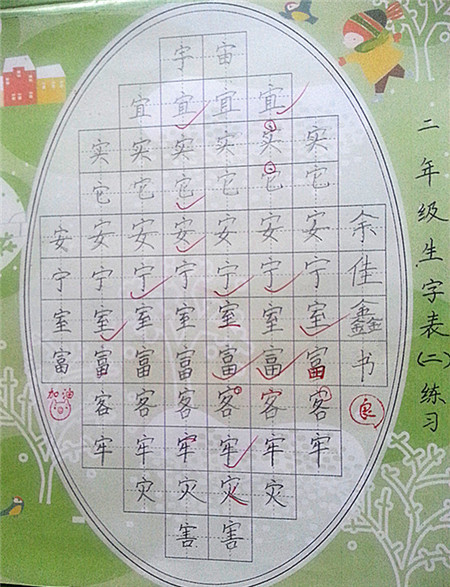 宇宙
宜宜宜宜
实实实实实实
它它它它它它
安安安安安安安余
宁宁宁宁宁宁宁佳
室室室室室室室鑫
富富富富富富富书
加油 客客客客客客 良
牢牢牢牢牢牢
灾灾灾灾
害害
二年级生字表(二)练习